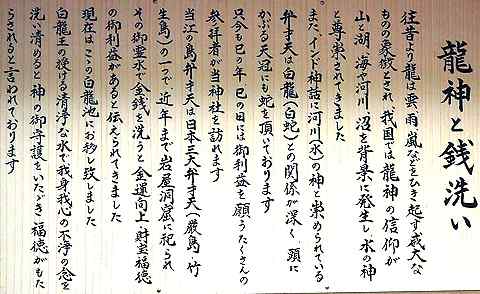 龍神と銭洗い
往昔より龍は雲、雨、嵐などをひき起す威大な
ものの象徴とされ、我国では龍神の信仰が
山と湖、海や河川、沼を背景に発生し、水の神
と尊崇されてきました
また、インド神話に河川(水)の神と崇められている
弁才天は白龍(白蛇)との関係が深く、頭に
かぶる天冠にも蛇を頂いております
只今も巳の年、巳の日には御利益を願うたくさんの
参拝者が当神社を訪れます
当江の島弁才天は日本三大弁才天(厳島・竹
生島)の一つで、近年まで岩屋洞窟に祀られ
その御霊水で金銭を洗うと金運向上、財宝福徳
の御利益があると伝えられてきました
現在はこゝの白龍池にお移し致しました
白龍王の授ける清浄な水で我身我心の不浄の念を
洗い清めると神の御守護をいたゞき、福徳がもた
らされると言われております